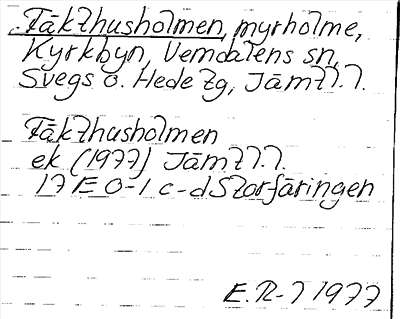 Fäkthusholmen, myrholme,
Kyrkbyn, Vemdalens sn,
Svegs o. Hede tg, Jämtl.l.
Fäkthusholmen
ek (1977) Jämtl.l.
17 E 0-1 c-d Storfåringen
E.R-l 1977